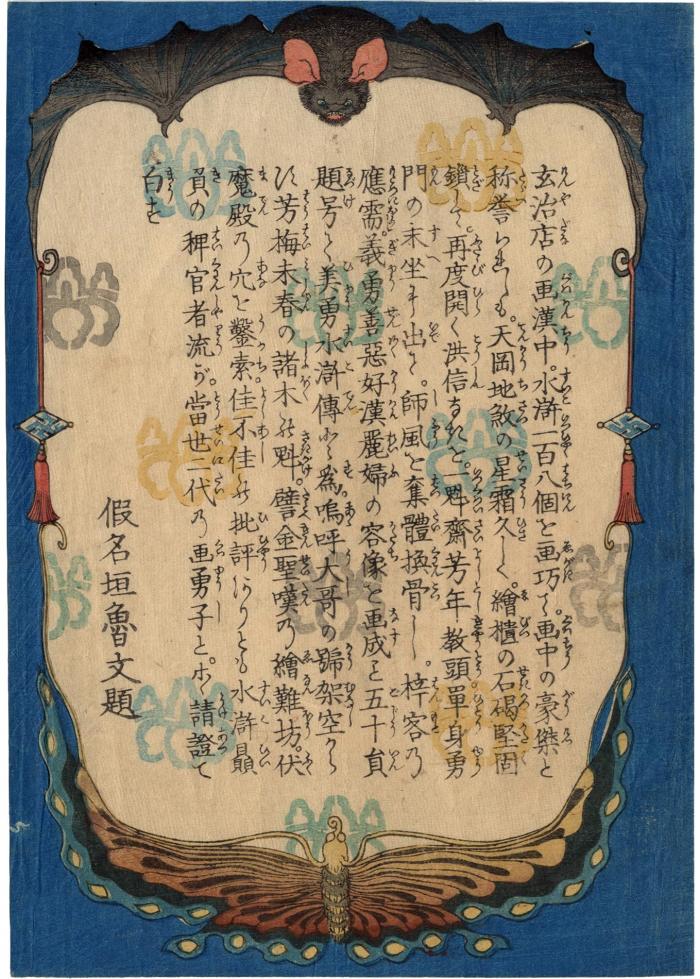 玄治店の画漢中。水滸一百八個を画巧て。画中の豪傑と
称誉らるゝも。天岡地煞の星霜久しく。繪櫃の石碣堅固
鎖して。再度開く洪信なきを。魁齋芳年教頭單身勇
門の末坐より出て。師風を奪體換骨し。梓客乃
應需。義勇善惡好漢麗婦の容像を画成を五十員
題号を美勇水滸傳と為。嗚呼大哥の號架空から
ず芳梅未春の諸木に魁。譬金聖嘆乃繪難坊。伏
魔殿乃穴を鑿索。佳不佳の批評ありとも水滸贔
負の稗官者流が。當世二代乃画勇子と。ホヽ請證て
白す
假名垣魯文題